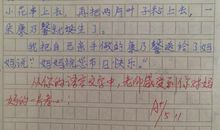 小花串上我，再把两片叶子粘上去，一
朵康乃馨就诞生了。
我把自己亲手做的康乃馨送给了妈
妈说：“妈妈祝您节日快乐。”
从你的语言文字中，老师感受到你对妈
妈的一片爱心！
A+
5.11